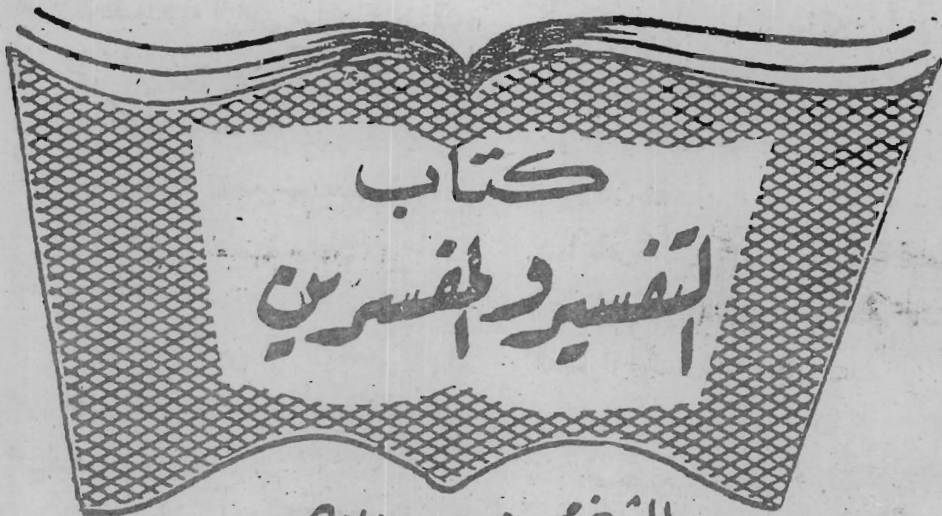 كتاب
التفسير والمفسرين